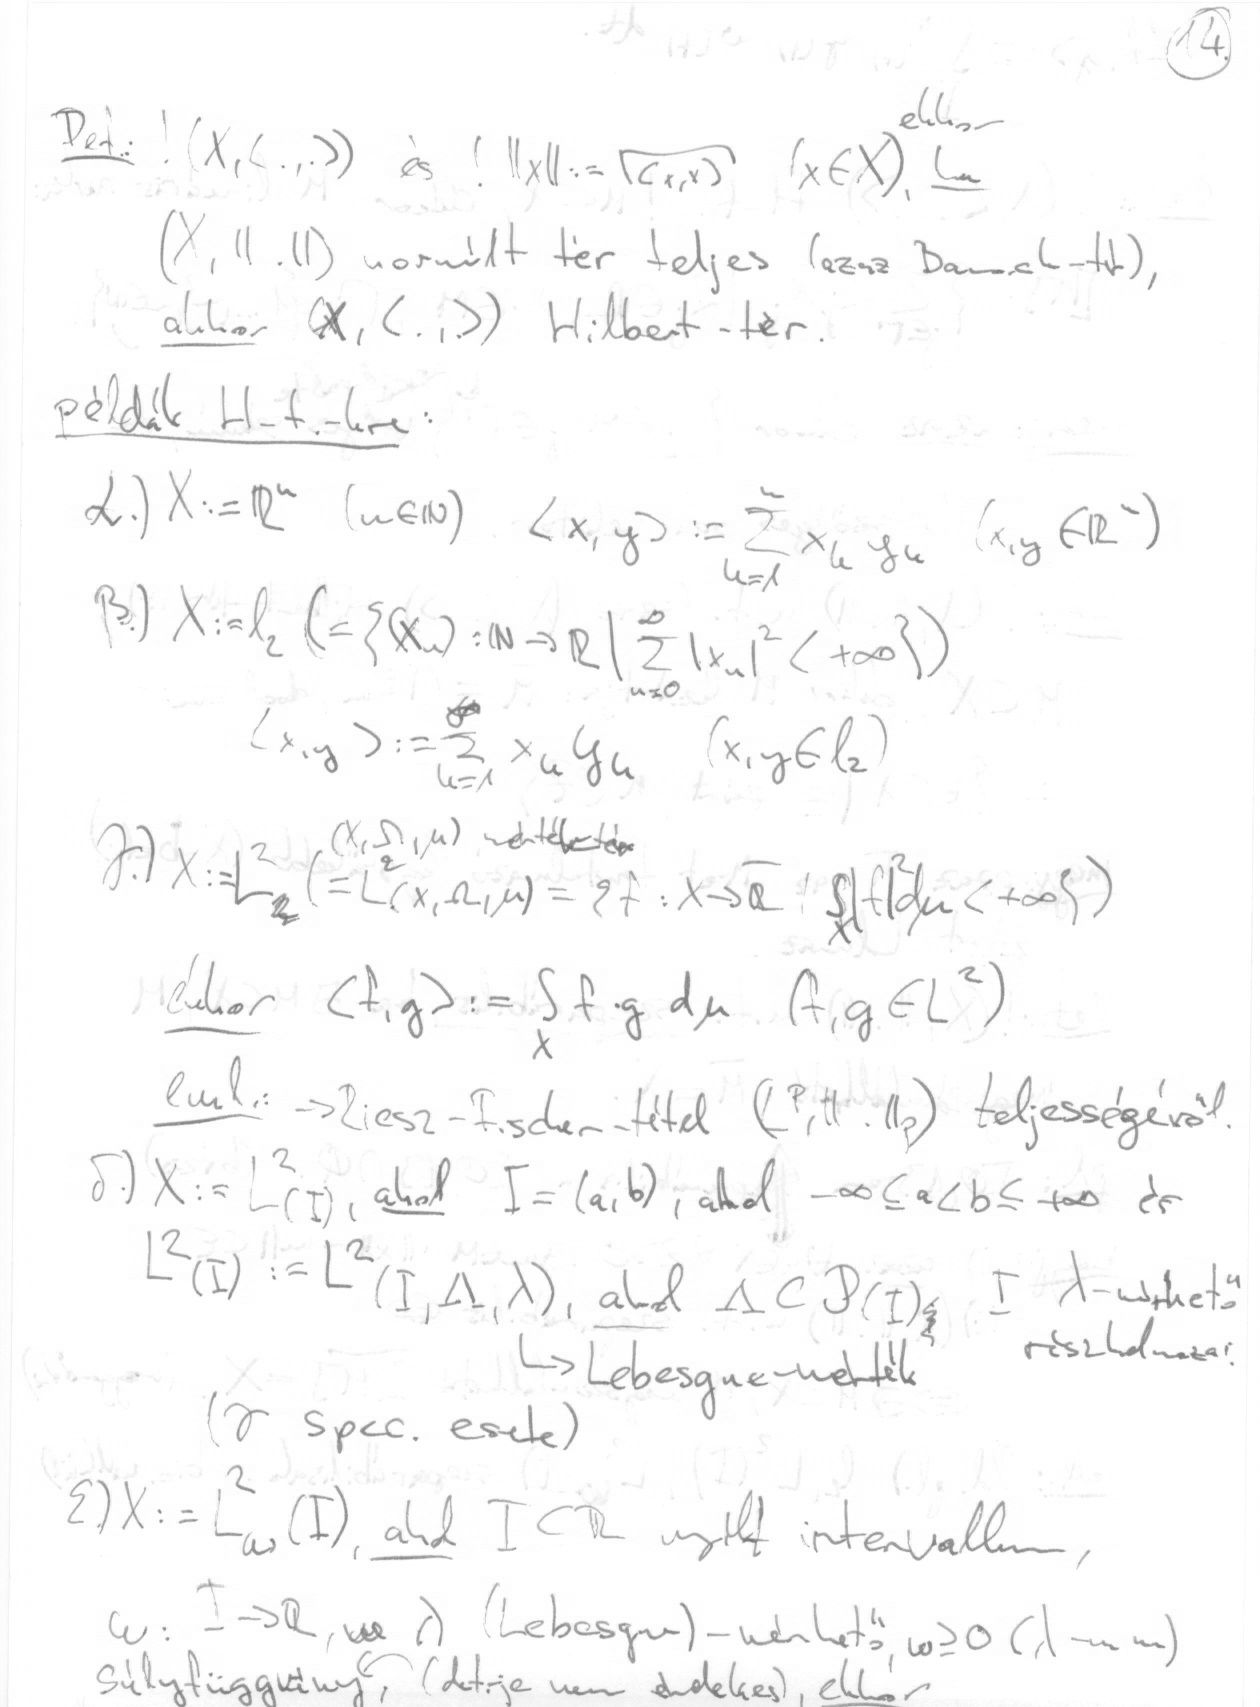 14.
Def.: ! (X, <.,.>) és ! ||x|| := √<x,x> (x∈X), ekkor ha
(X, ||.||) normált tér teljes (azaz Banach-tér),
akkor (X, <.,.>) Hilbert-tér.
példák H-t.-kre:
α.) X := ℝⁿ (n∈ℕ) <x,y> := ∑_{k=1}^{n} x_k y_k (x,y ∈ ℝⁿ)
β.) X := l₂ (= {(x_n) : ℕ → ℝ | ∑_{n=0}^{∞} |x_n|² < +∞})
<x,y> := ∑_{k=1}^{∞} x_k y_k (x,y ∈ l₂)
(X,Ω,μ) mértéktér
γ.) X := L² (= L²(X,Ω,μ) = {f : X → ℝ̄ | ∫_X |f|² dμ < +∞})
ekkor <f,g> := ∫_X f·g dμ (f,g ∈ L²)
eml.: → Riesz-Fischer-tétel (L^p, ||.||_p) teljességéről.
δ.) X := L²(I), ahol I = (a,b), ahol -∞ ≤ a < b ≤ +∞ és
L²(I) := L²(I,Λ,λ), ahol Λ ⊂ P(I) I λ-mérhető
részhalmazai
↳ Lebesgue-mérték
(γ spec. esete)
ε) X := L²_w(I), ahol I ⊂ ℝ nyílt intervallum,
w: I → ℝ, λ (Lebesgue)-mérhető, w ≥ 0 (λ-m m)
súlyfüggvény, (detje nem érdekes), ekkor